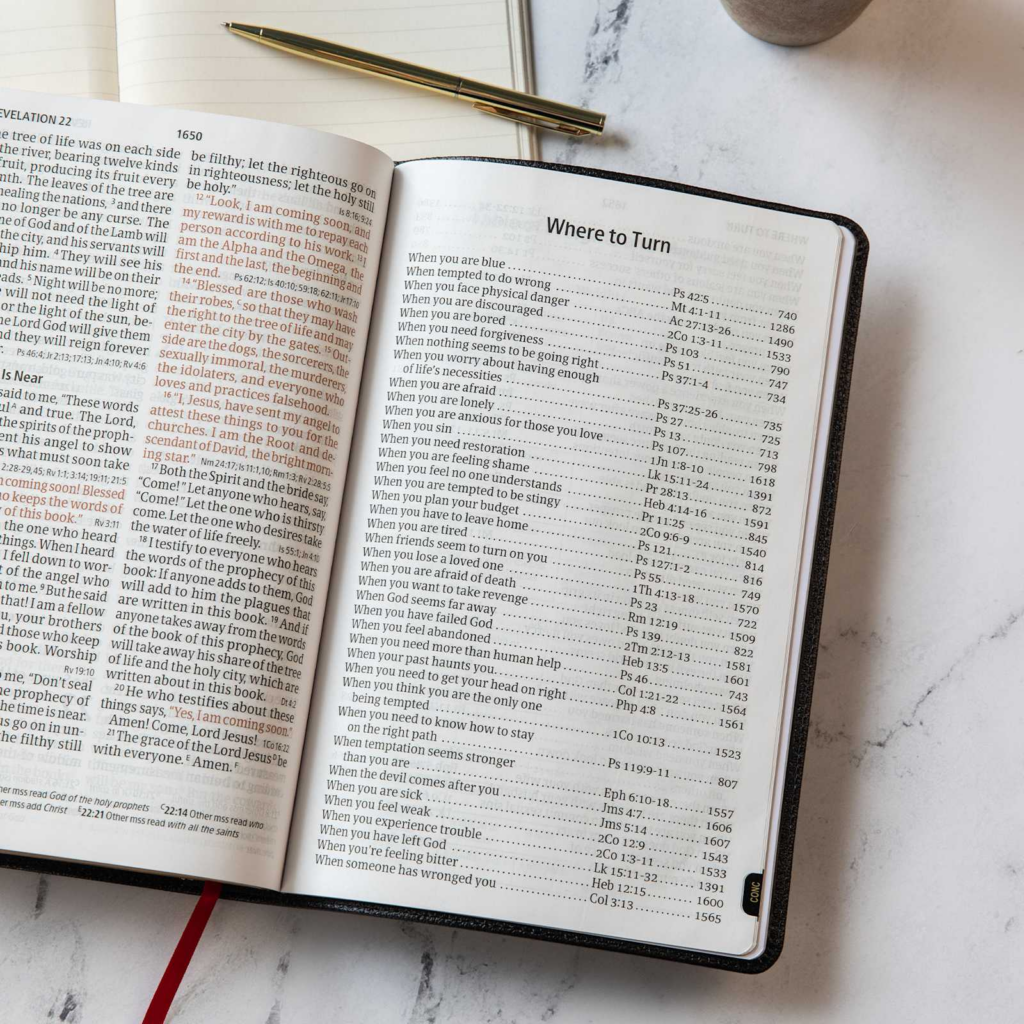 EVELATION 22
1650
e tree of life was on each side
the river, bearing twelve kinds
fruit, producing its fruit every
nth. The leaves of the tree are
healing the nations, 3 and there
no longer be any curse. The
ne of God and of the Lamb will
the city, and his servants will
hip him. 4 They will see his
nd his name will be on their
ads. 5 Night will be no more;
will not need the light of
or the light of the sun, be-
he Lord God will give them
nd they will reign forever
Ps 46:4; Jr 2:13; 17:13; Jn 4:10; Rv 4:6
Is Near
said to me, "These words
ul A and true. The Lord,
the spirits of the proph-
ent his angel to show
s what must soon take
2:28-29,45; Rv 1:1; 3:14; 19:11; 21:5
n coming soon! Blessed
ho keeps the words of
y of this book." Rv 3:11
the one who heard
things. When I heard
I fell down to wor-
t of the angel who
n to me. 9 But he said
that! I am a fellow
u, your brothers
d those who keep
s book. Worship
Rv 19:10
o me, "Don't seal
he prophecy of
the time is near.
us go on in un-
the filthy still
be filthy; let the righteous go on
in righteousness; let the holy still
be holy." Is 8:16; 9:24
12 "Look, I am coming soon, and
my reward is with me to repay each
person according to his work. 13 I
am the Alpha and the Omega, the
first and the last, the beginning and
the end. Ps 62:12; Is 40:10; 59:18; 62:11; Jr 17:10
14 "Blessed are those who wash
their robes, C so that they may have
the right to the tree of life and may
enter the city by the gates. 15 Out-
side are the dogs, the sorcerers, the
sexually immoral, the murderers,
the idolaters, and everyone who
loves and practices falsehood.
16 "I, Jesus, have sent my angel to
attest these things to you for the
churches. I am the Root and de-
scendant of David, the bright morn-
ing star." Nm 24:17; Is 11:1,10; Rm 1:3; Rv 2:28; 5:5
17 Both the Spirit and the bride say,
"Come!" Let anyone who hears, say,
"Come!" Let the one who is thirsty
come. Let the one who desires take
the water of life freely. Is 55:1; Jn 4:10
18 I testify to everyone who hears
the words of the prophecy of this
book: If anyone adds to them, God
will add to him the plagues that
are written in this book. 19 And if
anyone takes away from the words
of the book of this prophecy, God
will take away his share of the tree
of life and the holy city, which are
written about in this book. Dt 4:2
20 He who testifies about these
things says, "Yes, I am coming soon."
Amen! Come, Lord Jesus! 1Co 16:22
21 The grace of the Lord Jesus D be
with everyone. E Amen. F
her mss read God of the holy prophets C 22:14 Other mss read who
er mss add Christ E 22:21 Other mss read with all the saints
Where to Turn
When you are blue Ps 42:5 740
When tempted to do wrong Mt 4:1-11 1286
When you face physical danger Ac 27:13-26 1490
When you are discouraged 2Co 1:3-11 1533
When you are bored Ps 103 790
When you need forgiveness Ps 51 747
When nothing seems to be going right Ps 37:1-4 734
When you worry about having enough
of life's necessities Ps 37:25-26 735
When you are afraid Ps 27 725
When you are lonely Ps 13 713
When you are anxious for those you love Ps 107 798
When you sin 1Jn 1:8-10 1618
When you need restoration Lk 15:11-24 1391
When you are feeling shame Pr 28:13 872
When you feel no one understands Heb 4:14-16 1591
When you are tempted to be stingy Pr 11:25 845
When you plan your budget 2Co 9:6-9 1540
When you have to leave home Ps 121 814
When you are tired Ps 127:1-2 816
When friends seem to turn on you Ps 55 749
When you lose a loved one 1Th 4:13-18 1570
When you are afraid of death Ps 23 722
When you want to take revenge Rm 12:19 1509
When God seems far away Ps 139 822
When you have failed God 2Tm 2:12-13 1581
When you feel abandoned Heb 13:5 1601
When you need more than human help Ps 46 743
When your past haunts you Col 1:21-22 1564
When you need to get your head on right Php 4:8 1561
When you think you are the only one
being tempted 1Co 10:13 1523
When you need to know how to stay
on the right path Ps 119:9-11 807
When temptation seems stronger
than you are Eph 6:10-18 1557
When the devil comes after you Jms 4:7 1606
When you are sick Jms 5:14 1607
When you feel weak 2Co 12:9 1543
When you experience trouble 2Co 1:3-11 1533
When you have left God Lk 15:11-32 1391
When you're feeling bitter Heb 12:15 1600
When someone has wronged you Col 3:13 1565
CONC